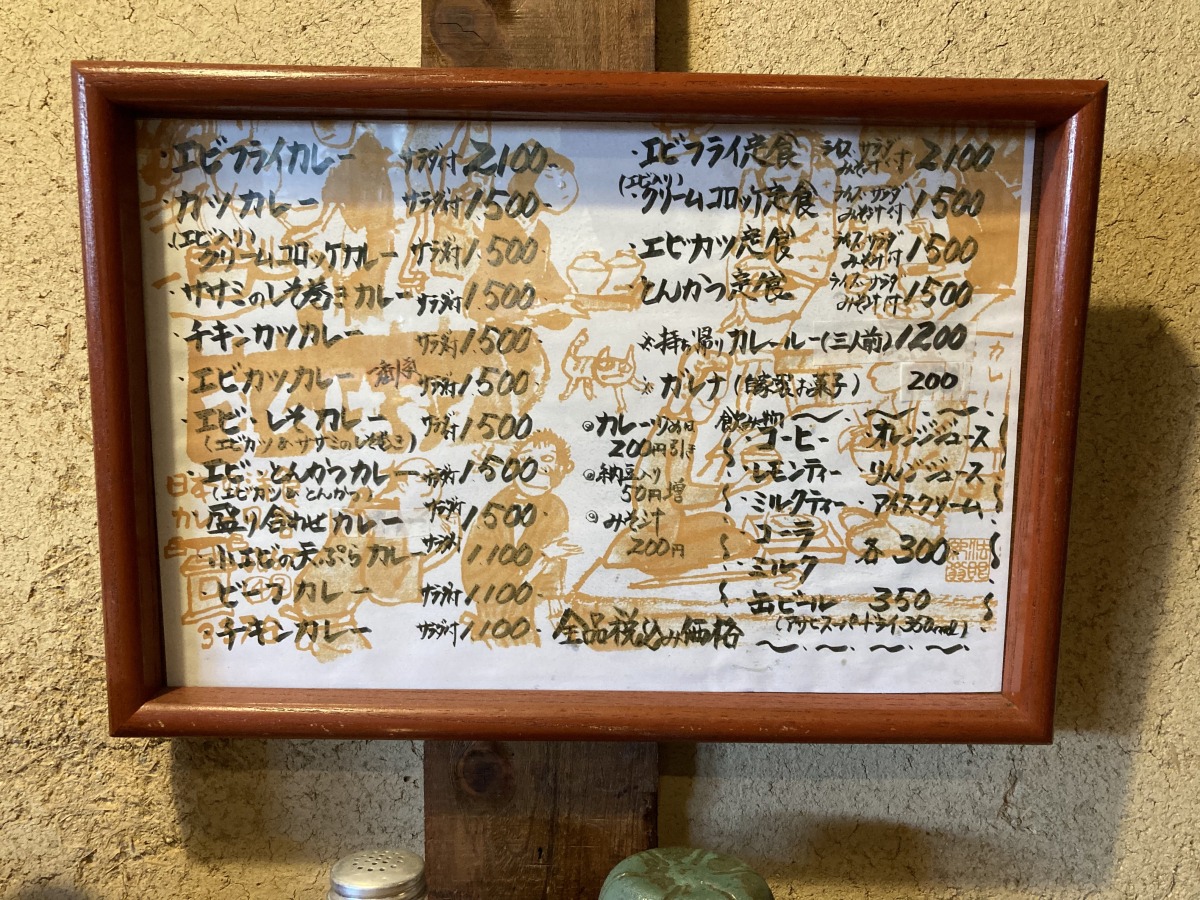 ・エビフライカレー サラダ付 2100
・カツカレー サラダ付 1500
(エビ入り)
・クリームコロッケカレー サラダ付 1500
・ササミのしそ巻きカレー サラダ付 1500
・チキンカツカレー サラダ付 1500
・エビカツカレー サラダ付 1500
・エビ・しそカレー サラダ付 1500
(エビカツ&ササミのしそ巻き)
・エビ・とんかつカレー サラダ付 1500
(エビカツ& とんかつ)
盛り合わせカレー サラダ付 1500
・小エビの天ぷらカレー サラダ付 1100
・ビーフカレー サラダ付 1100
・チキンカレー サラダ付 1100
・エビフライ定食 ライス・サラダ みそ汁付 2100
(エビ入り)
・クリームコロッケ定食 ライス・サラダ みそ汁付 1500
・エビカツ定食 ライス・サラダ みそ汁付 1500
・とんかつ定食 ライス・サラダ みそ汁付 1500
※持ち帰りカレールー(三人前) 1200
※ガレナ(自家製お菓子) 200
◎カレーのみは
200円引き
◎納豆入り
50円増
◎みそ汁
200円
飲み物
・コーヒー ・オレンジジュース
・レモンティー ・りんごジュース
・ミルクティー ・アイスクリーム
・コーラ 各300
・ミルク
・缶ビール 350
(アサヒスーパードライ350ml)
全品税込み価格